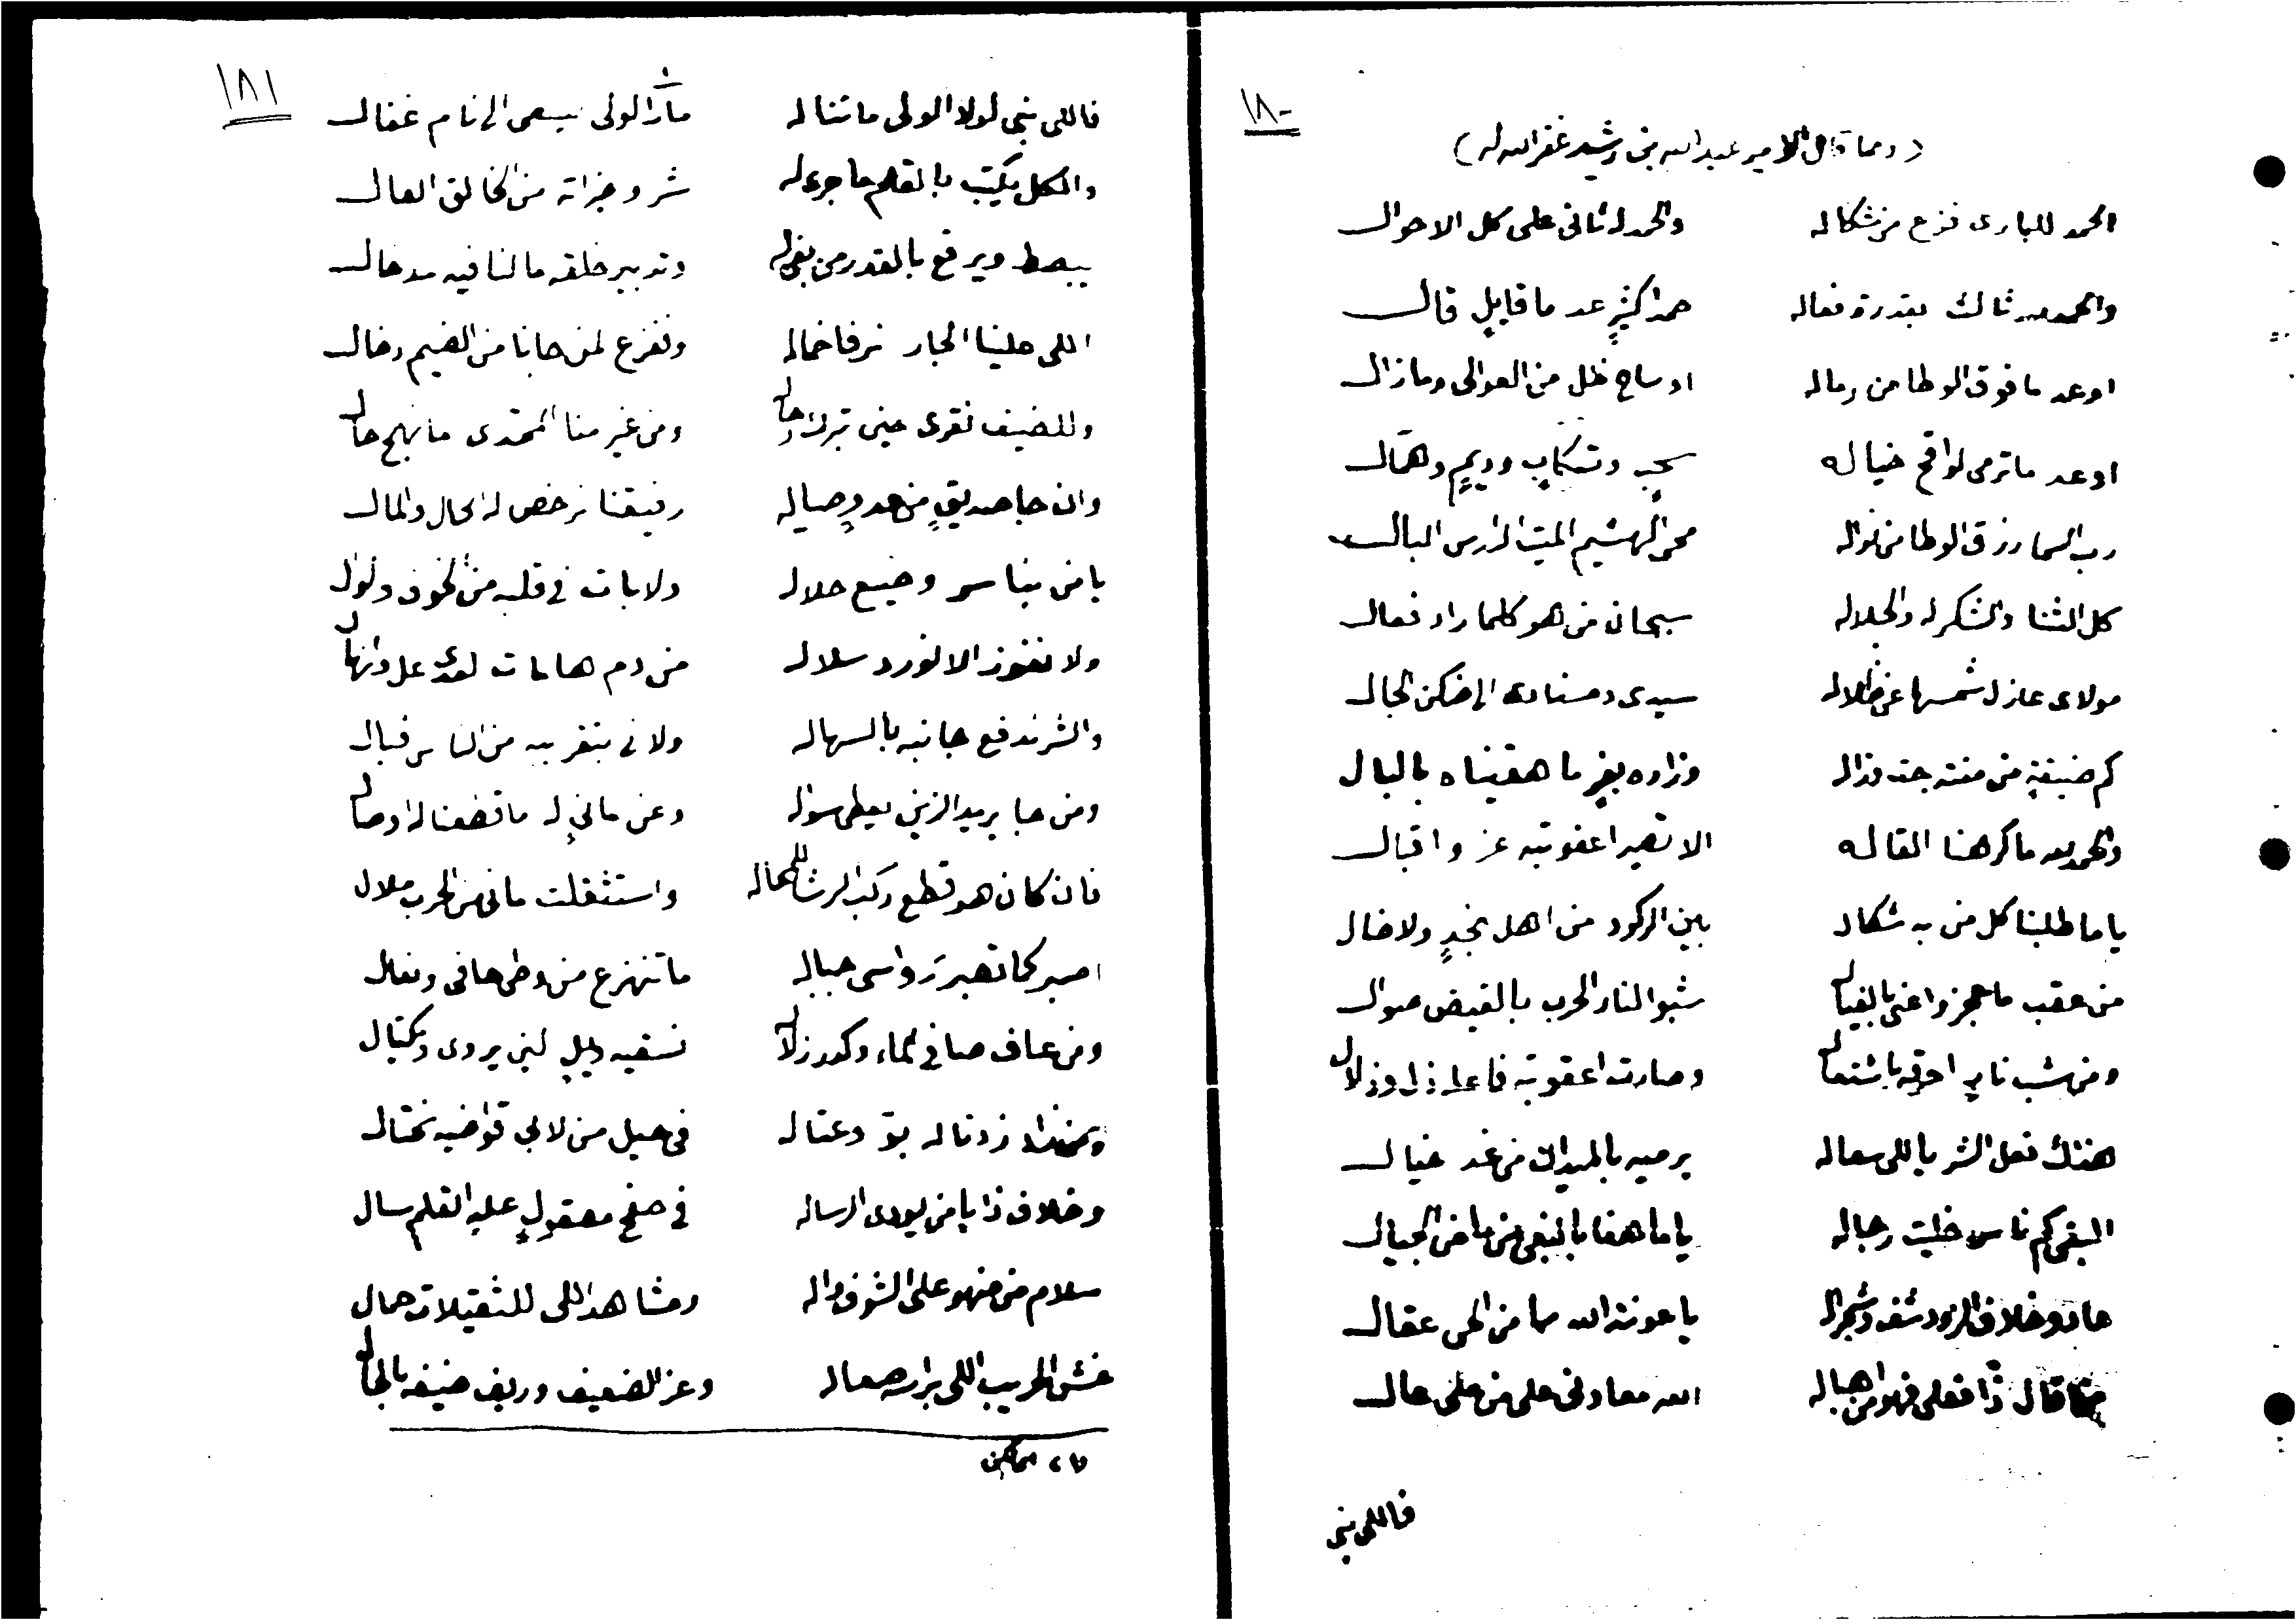 ١٨٠
(ومما قال الامير عبدالله بن رشيد غفر الله له)
الحمد للباري نزع من شكاله والحمد له ثاني على كل الاحوال
والحمد لله ثالث بقدرة فعاله حمد اكثيرٍ عد ما قايلٍ قال
اوعد ما فوق الوطا من رماله اوساح ظل من العوالي وما زال
اوعد ما ترمي لواقح خياله سحبٍ وتسكابٍ وديمٍ وهمّال
رب السما رزق الوطا من نواله محي الهشيم الميت الدارس البال
كل الثنا والشكر له والجلاله سبحان من هو كلما راد فعال
مولاي عازل شمسها عن ظلاله سيدي ومسنادي الى ضكن الحال
كم ضيقةٍ من منته جت وزاله وزاده بغيرٍ ما هقيناه بالبال
والحمد لله ما كرهنا القاله الا تصير اعقوبته عز واقبال
ياما طلبنا كل من به شكاله بين الركود من اهل نجدٍ ولا ضال
من عقب ما عجزوا عني بالفيال شبوا لنار الحرب بالقيض صوال
ومن شب نارٍ احرقه باشتعال وصارت اعقوبة فاعله ذل وذلال
هنتك فعل الشر باللي سعاله يرميه بالميدان من غد خيال
البقي كم ناس خليت رجاله ياما هفا بالبقي من ماضي الجيال
يا عونة الله مما من الحي عقال
قال ذا فعلي فهو من اهباله الله معاوني على من على عال
فاللي بني
١٨١
فاللي بني لولا الولي ما تناله ماثر الولي يسعى الى نام غفال
والكل يكتب بالقلم ما جرى له شر وخيراته من الخالق العال
يبسط ويرفع بالقدر من بغى له وتدبير خلقه ما لنا فيه مدخال
اللي علينا الجار نرفا خماله ونفزع لمن جانا من الضيم دخال
وللضيف نقرى حين تبرك رحال ومن غير منا المجتدي ما نهج حال
وان جا صديقٍ من عدوٍ صياله رفيقنا نرخص له الحال والمال
يامن بنا سر وضيع حلاله ولا بات في قلبه من الخوف ولوال
والشر ندفع جانبه بالسهاله ولا نتقربه من الناس قبال
ومن جا يريد الزين يعطى سواله
فان كان هو قطع ركب الرشا للمحاله واستثقلت ماني من الحرب ملال
اصبر كما تصبر رواسي جباله ما تنهزع من وطي حافي ونعال
ومن عاف صافي الماء وكدر زلال نسقيه ويلٍ لين يروى ويكتال
زدنا له بوّ وعتاله في حيل من لابي قواضبه نختال
وخلاف ذا يا من يودي الرساله في صفح معقولٍ عليه القلم سال
سلام من منهو على الشوف واله ومشاهد اللي للثقيلات حمال
خش الحريب اللي براسه صعاله وعز الضعيف وريف ضيفه بالمحال